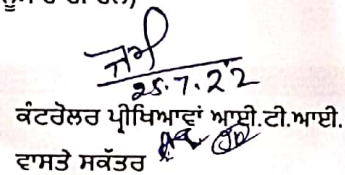 25.7.22
ਕੰਟਰੋਲਰ ਪ੍ਰੀਖਿਆਵਾਂ ਆਈ.ਟੀ.ਆਈ.
ਵਾਸਤੇ ਸਕੱਤਰ